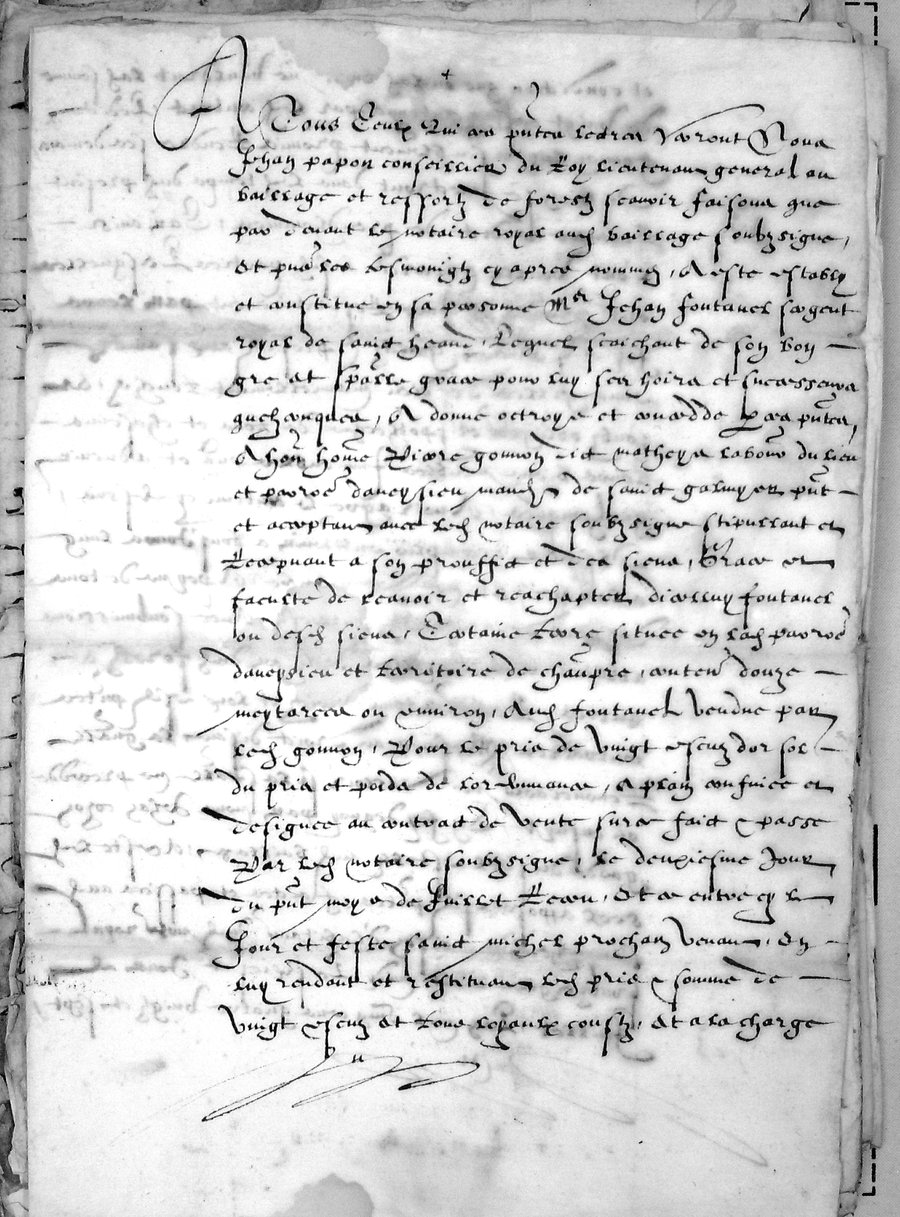 A Tous Ceulx Qui ces pñtes lectres Verront Nous
Jehan papon conseillier du Roy lieutenan general au
bailliage et ressortz de forestz scavoir faisons que
par devant le notaire royal aud bailliage soubzsigne,
Et pñs les tesmoingtz cy apres nommez, A este estably
et constitue en sa personne Mer Jehan fontanel sergent
royal de sainct heand, Lequel scaichant de son bon
gre et spãlle grace pour luy ses hoirs et successeurs
quelzconques, A donne octroye et concedde Par ces pñtes,
A hon̄ home Pierre gonnon dict mathey labour du lieu
et parroē daveysieu mand de sainct galmyer pñt
et acceptan avec led notaire soubzsigne stipullant et
Recepvant a son prouffict et des siens, Grace et
faculte de ravoir et reachapter dicelluy fontanel
ou desd siens, Certaine terre situee en lad parroē
daveysieu et territoire de chaupre, conten douze
meytarees ou environ, Aud fontanel vendue par
led gonnon, Pour le pris de vingt escuz dor sol
du pris et poidz de lordonnance, a plain confinee et
designee au contract de vente surce faict & passe
Par led notaire soubzsigne, le deuxiesme Jour
du pñt moys de Juillet Receu, Et ce entre cy le
Jour et feste sainct michel prochain venan, En
luy rendant et restituan led pris & somme de
vingt escuz et tous loyaulx coustz, Et a la charge